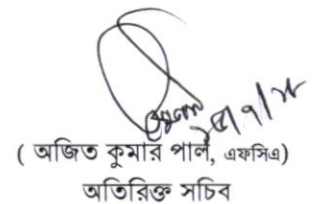 ( অজিত কুমার পাল, এফসিএ)
অতিরিক্ত সচিব